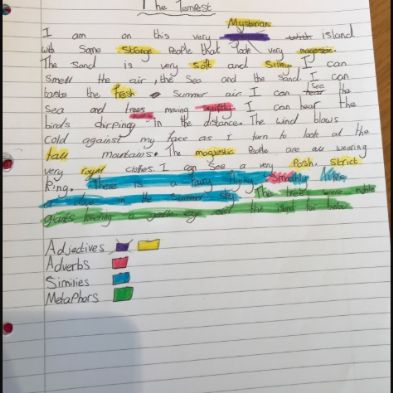 The Tempest
Mysterious
I am on this very island
with some strange people that look very majestic.
The sand is very soft and silky I can
smell the air, the sea and the sand I can
taste the fresh summer air I can see the
sea and trees moving I can hear the
birds chirping in the distance. The wind blows
cold against my face as I turn to look at the
tall mountains. The magestic People are wearing
very royal clothes. I can see a very Posh, strict
King. There is a fairy flying
a in the summer sky The trees were noble
giants
Adjectives
Adverbs
Similies
Metaphors